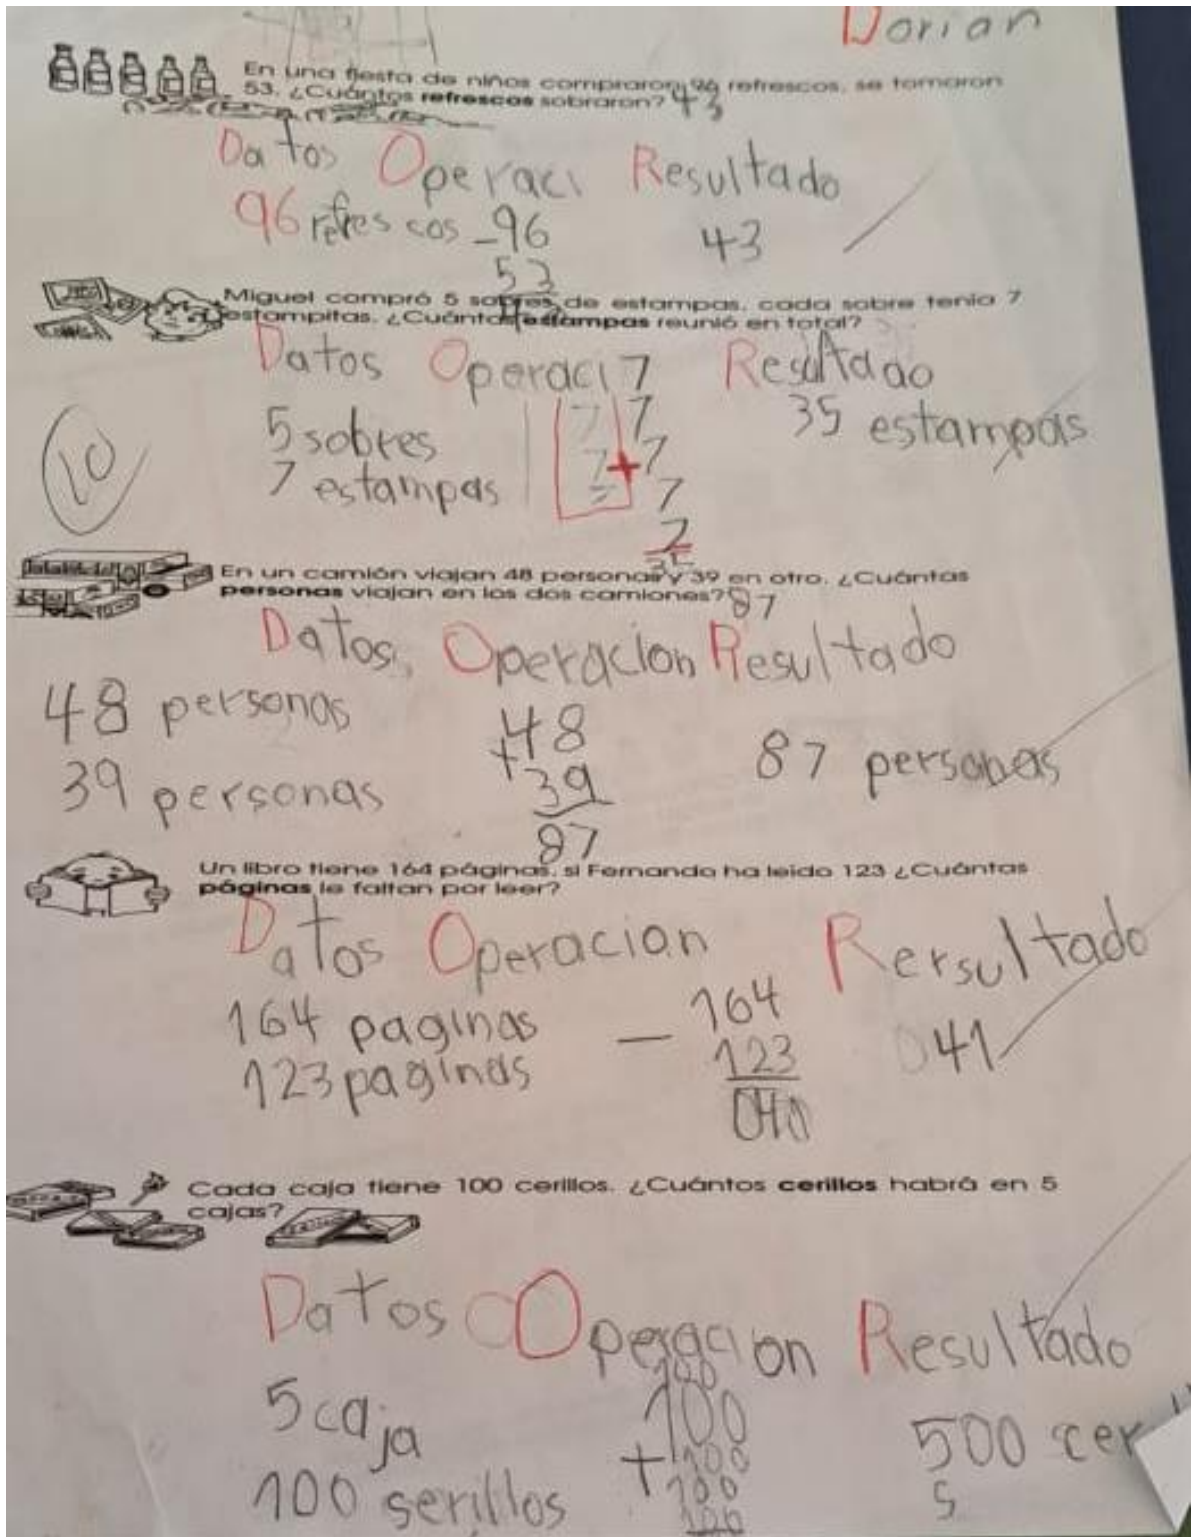 Dorian
En una fiesta de niños compraron 96 refrescos, se tomaron
53. ¿Cuántos refrescos sobraron? 43
Datos Operaci Resultado
96 refrescos -96 43
53
Miguel compró 5 sobres de estampas, cada sobre tenía 7
estampitas. ¿Cuántas estampas reunió en total?
Datos Operaci 7 Resultado
5 sobres 7 7 35 estampas
7 estampas 7 + 7
10
7 7
7
35
En un camión viajan 48 personas y 39 en otro. ¿Cuántas
personas viajan en los dos camiones? 87
Datos Operacion Resultado
48 personas +48 87 personas
39 personas 39
87
Un libro tiene 164 páginas, si Fernanda ha leído 123 ¿Cuántas
páginas le faltan por leer?
Datos Operacion Rersultado
164 paginas - 164 041
123 paginas 123
041
Cada caja tiene 100 cerillos. ¿Cuántos cerillos habrá en 5
cajas?
Datos Operacion Resultado
100
5 caja 100 500 cer
+ 100
100 serillos 100 5
100